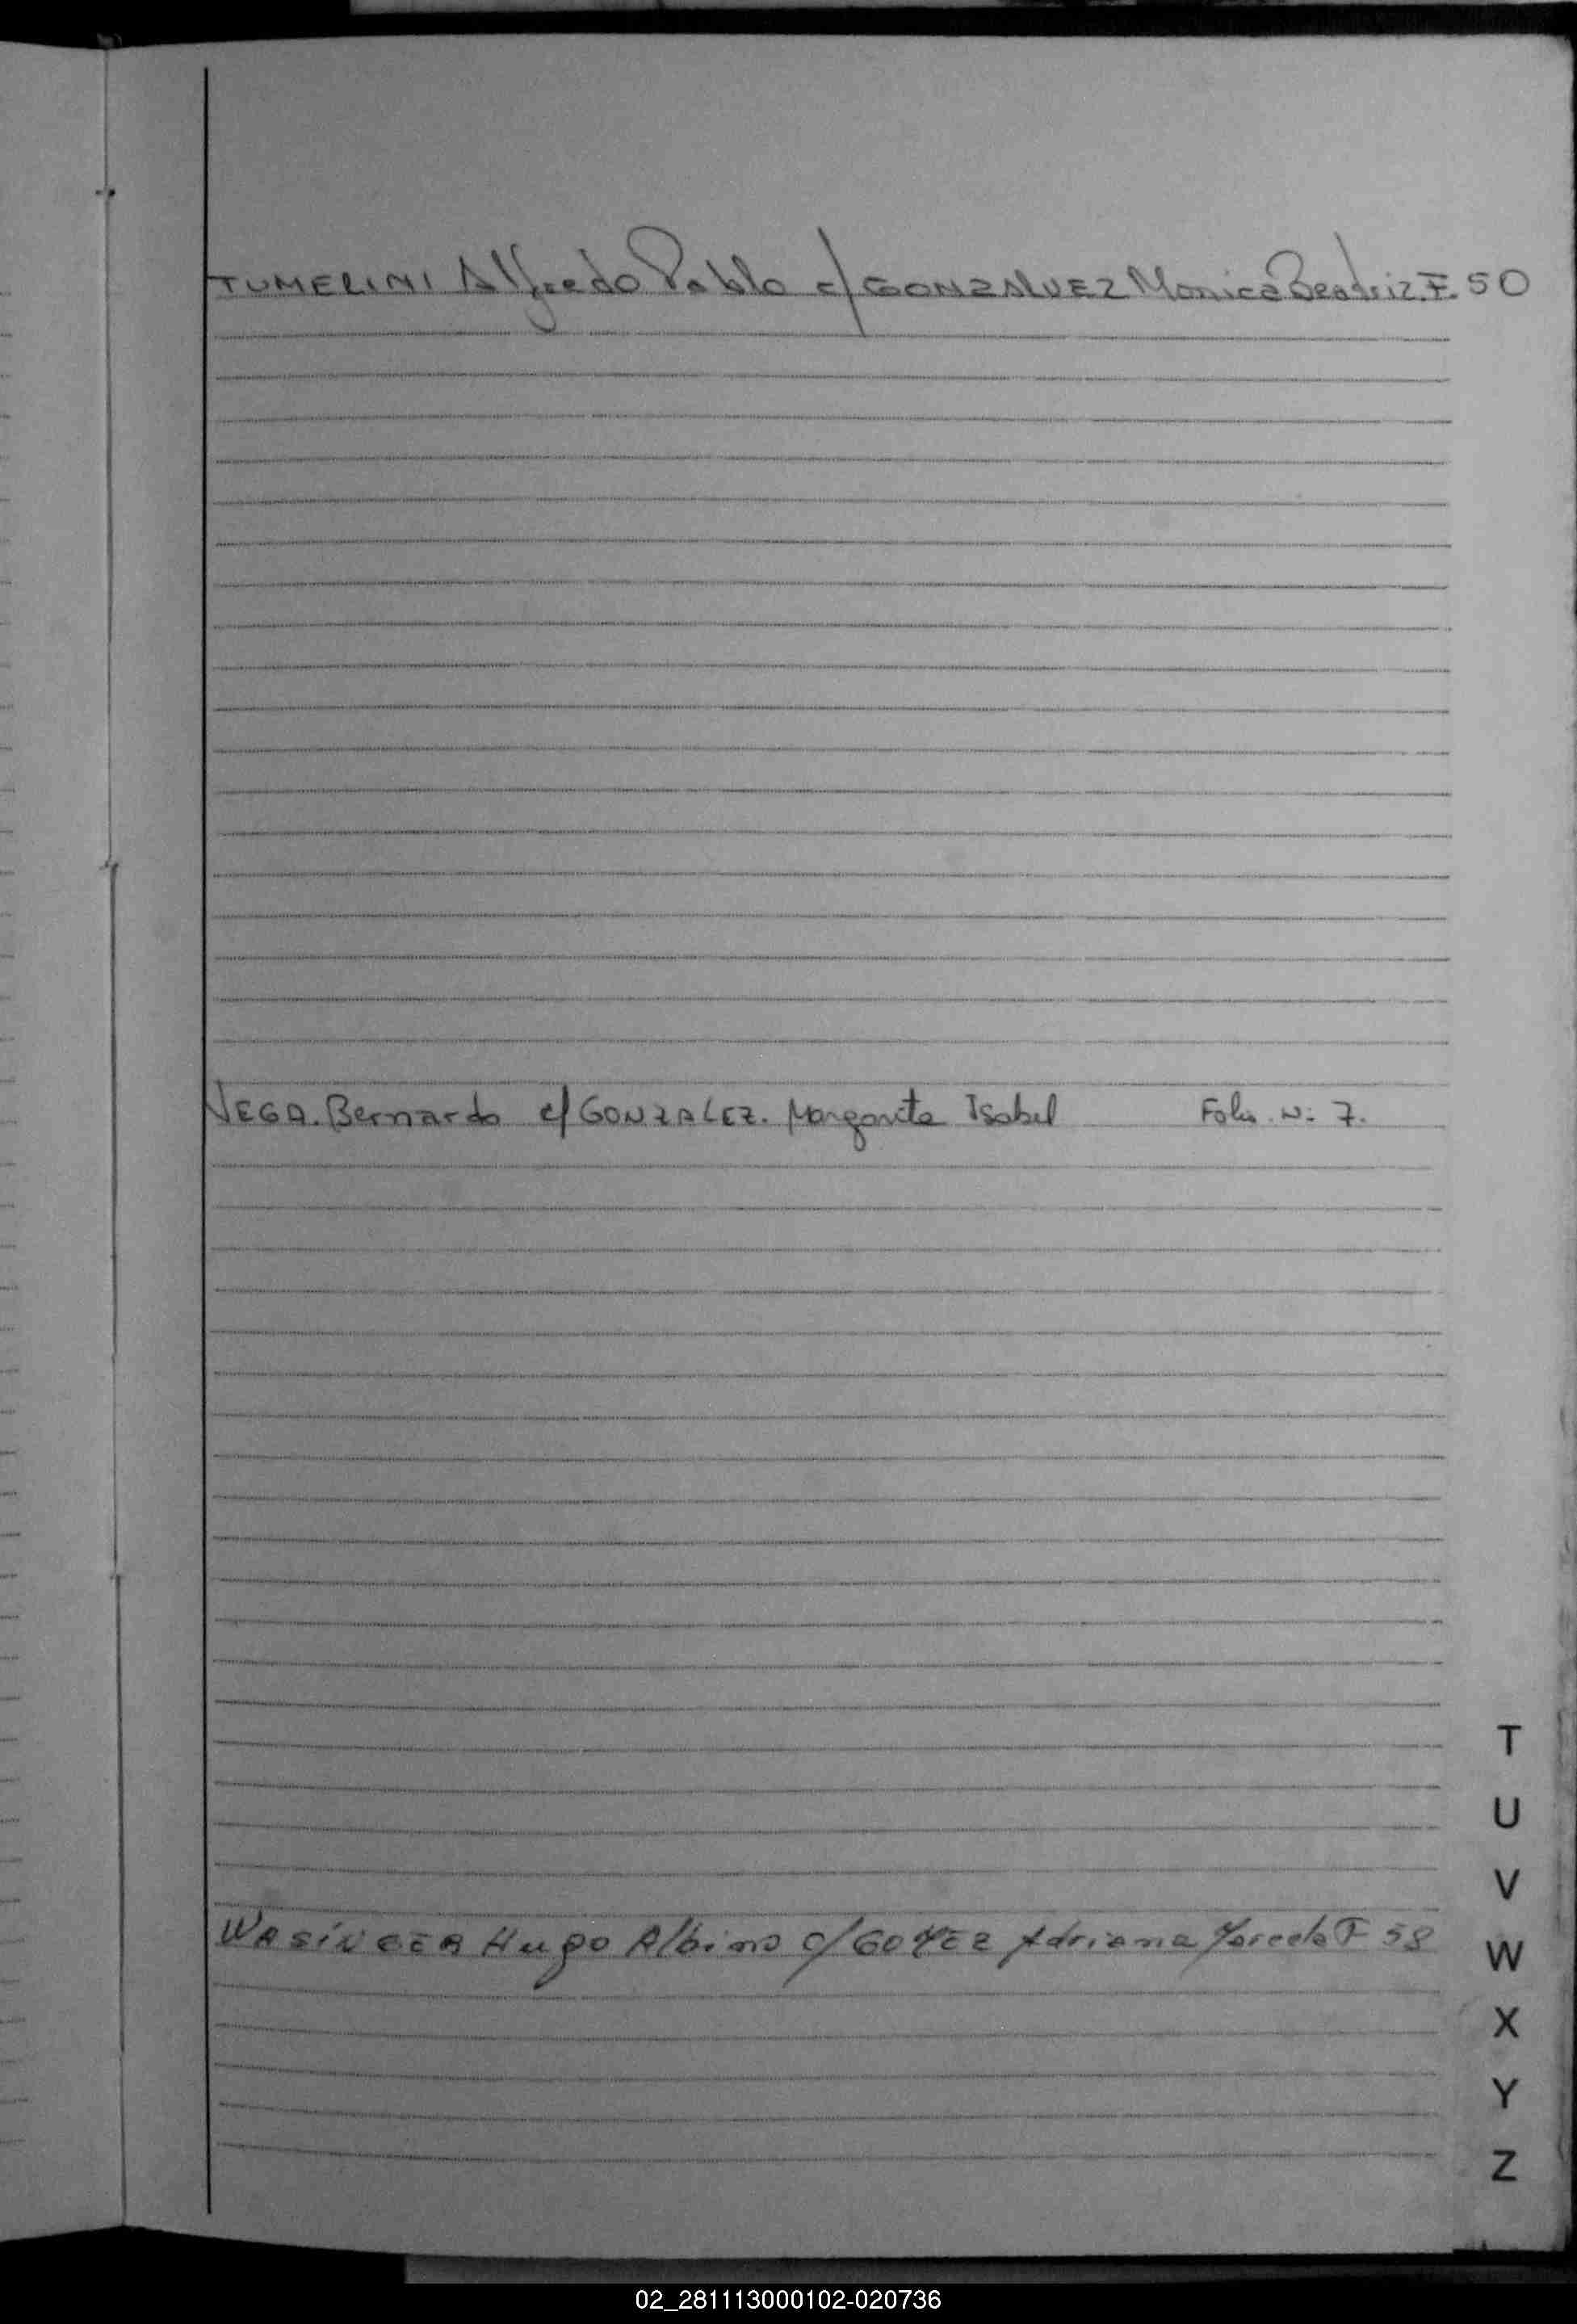 TUMERINI Alfredo Pablo c/ GONZALVEZ Monica Beatriz. F. 50
VEGA. Bernardo c/ GONZALEZ. Margarita Isabel Folio. N: 7.
WASINGER Hugo Albino c/ GOMEZ Adriana Marcela F 58
T
U
V
W
X
Y
Z
02_281113000102-020736